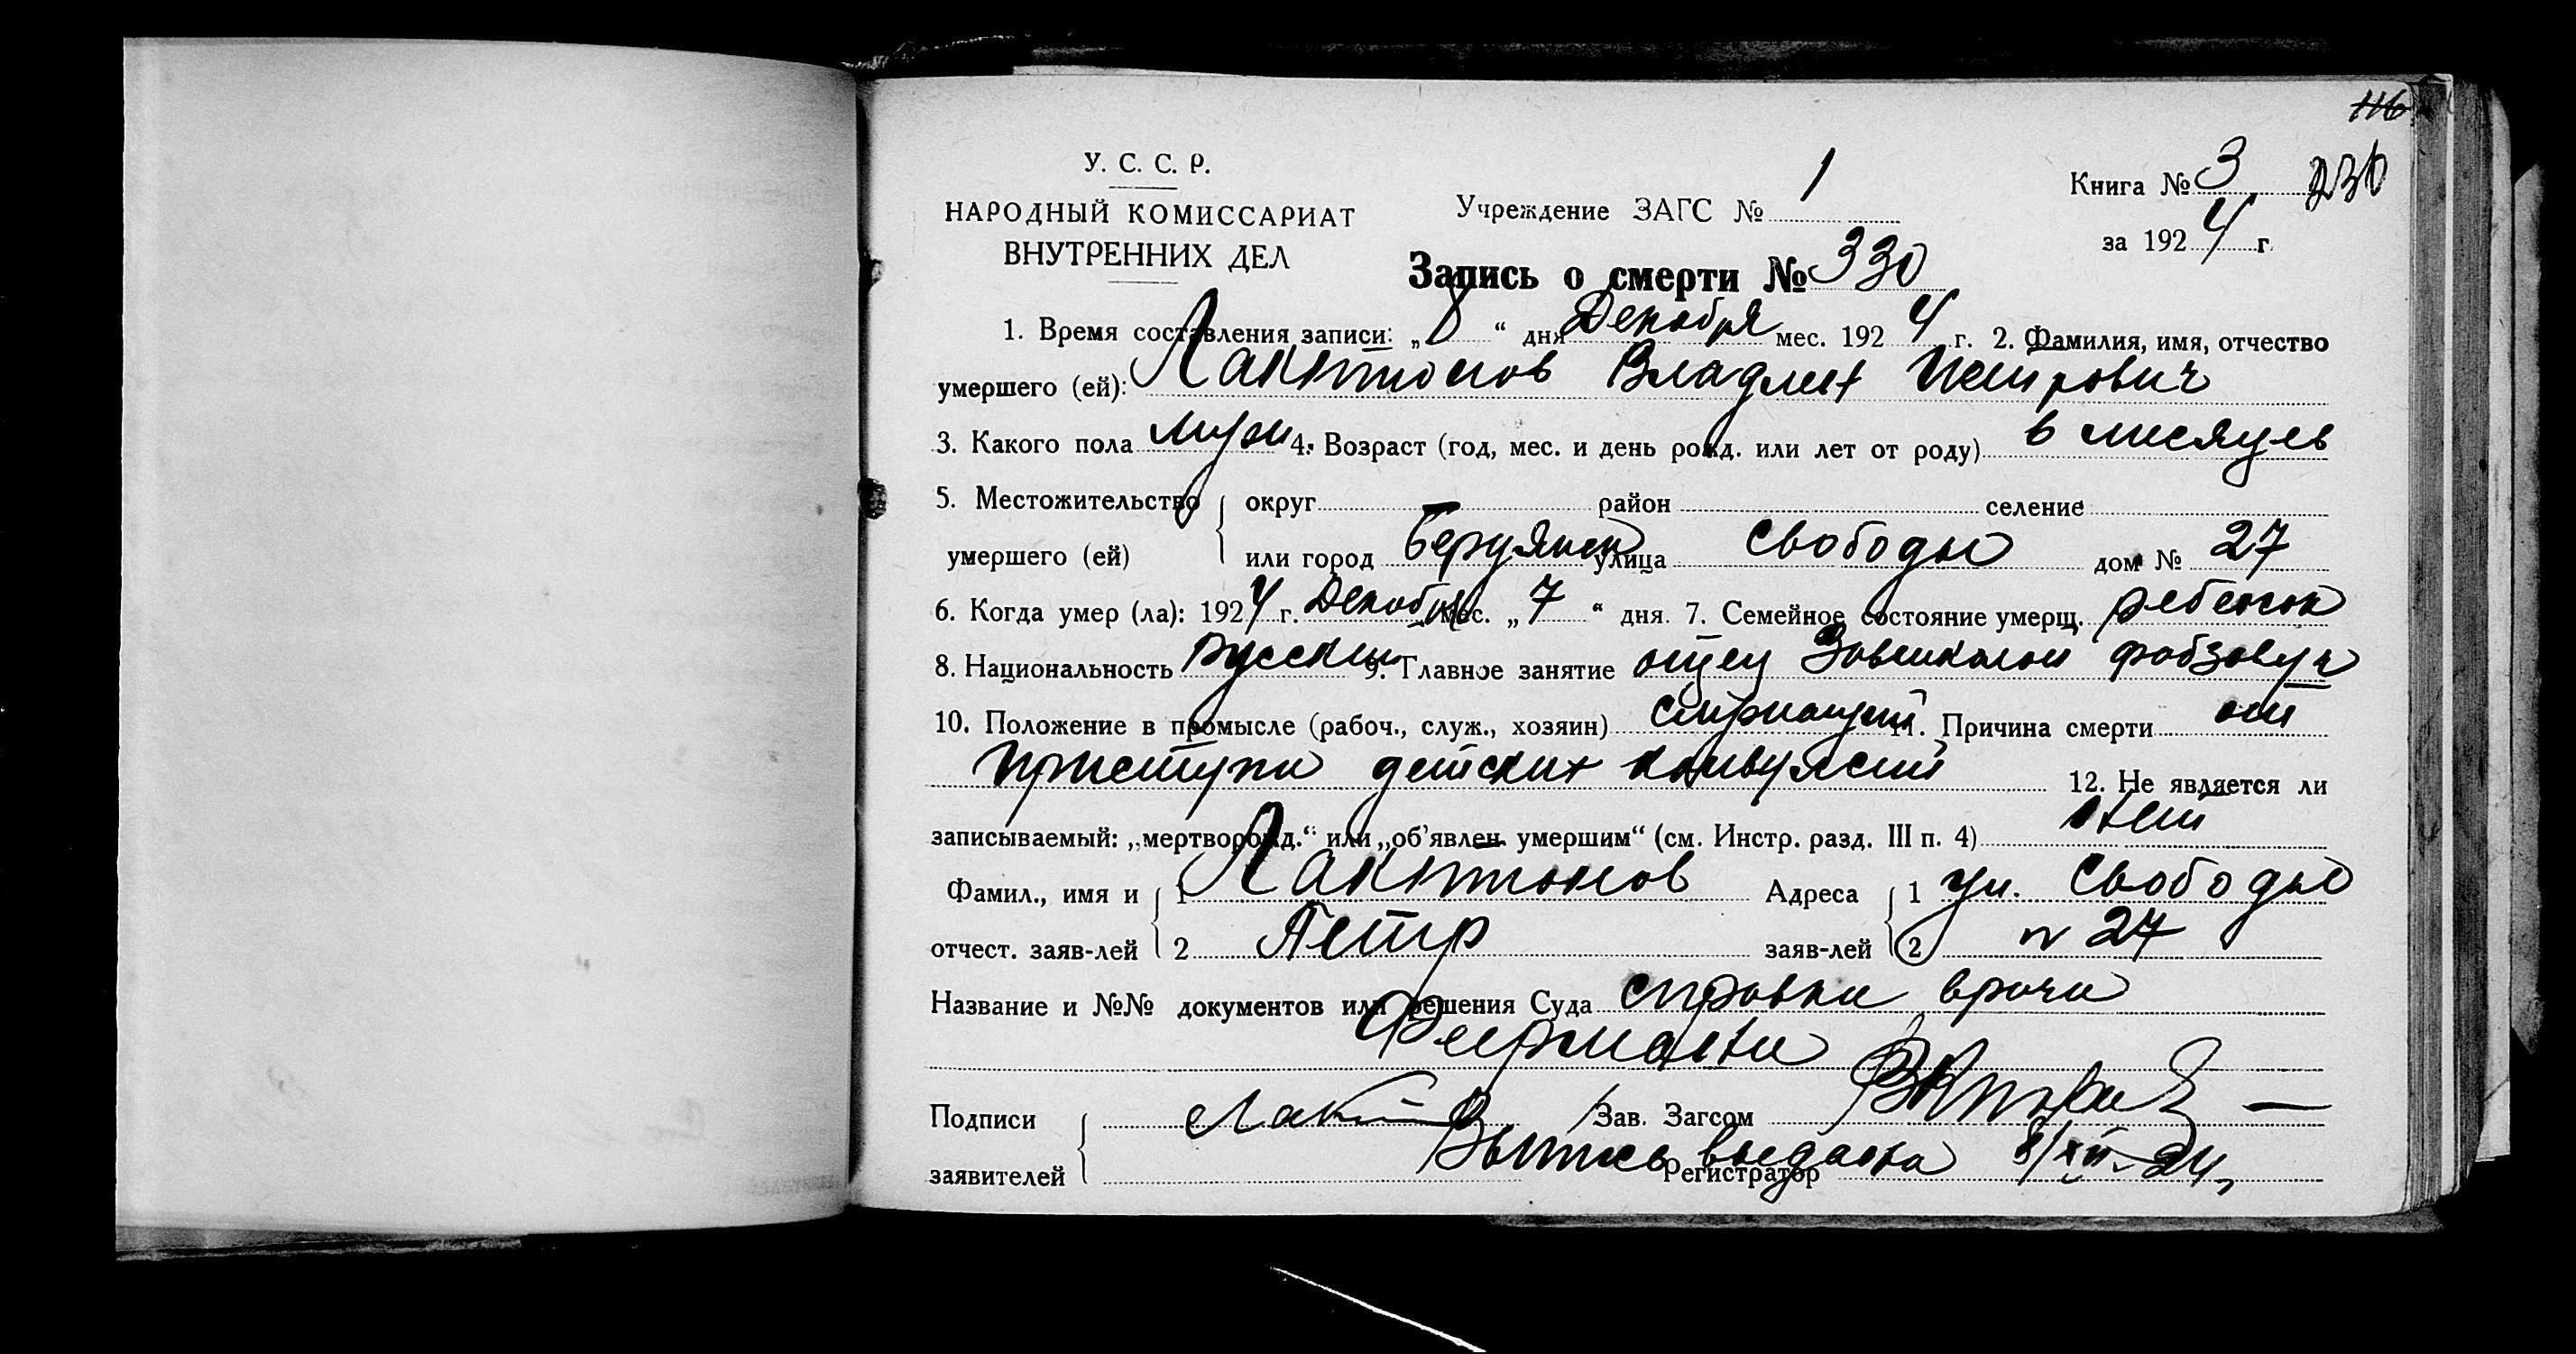 116
У. С. С. Р.
НАРОДНЫЙ КОМИССАРИАТ
ВНУТРЕННИХ ДЕЛ
Учреждение ЗАГС № 1
Книга № 3 230
за 1924 г.
Запись о смерти № 330
1. Время составления записи: „8“ дня Декабря мес. 1924 г. 2. Фамилия, имя, отчество
умершего (ей): Лактионов Владлен Петрович
3. Какого пола муж 4. Возраст (год, мес. и день рожд. или лет от роду) 6 месяцев
5. Местожительство умершего (ей) округ район селение
или город Бердянск улица Свободы дом № 27
6. Когда умер (ла): 1924 г. Декабря мес. „7“ дня. 7. Семейное состояние умерш. ребенок
8. Национальность русский 9. Главное занятие отец Завшколой фабзавуч
10. Положение в промысле (рабоч., служ., хозяин) 11. Причина смерти от
приступа детских конвульсий 12. Не является ли
записываемый: „мертворожд.“ или „об’явлен умершим“ (см. Инстр. разд. III п. 4) Нет
Фамил., имя и отчест. заяв-лей 1 Лактионов Адреса заяв-лей 1 ул. Свободы
2 Петр 2 № 27
Название и №№ документов или решения Суда справка врача
Подписи заявителей Зав. Загсом
Выпись выдана 8/XII-24
Регистратор